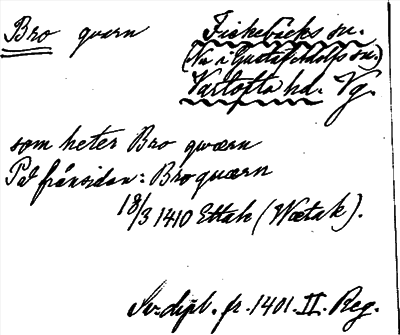 Bro qvarn Fiskebäcks sn.
(Nu i Gustaf Adolfs sn.)
Vartofta hd. Vg.
som heter Bro qwærn
På frånsidan: Broquærn
18/3 1410 Ettak (Wætak).
Sv. dipl. fr. 1401 II. Reg.